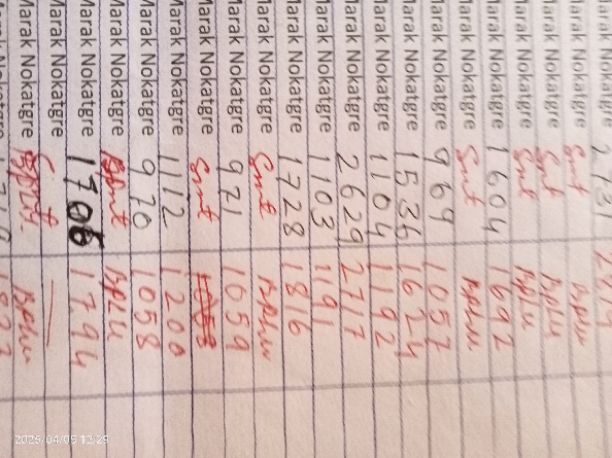 Marak Nokatgre
Marak Nokatgre Smt BPLW
Marak Nokatgre Smt BPLW
Marak Nokatgre Smt BPLU
Marak Nokatgre 1604 1692
Marak Nokatgre Smt BPLW
Marak Nokatgre 969 1057
Marak Nokatgre 1536 1624
Marak Nokatgre 1104 1192
Marak Nokatgre 2629 2717
Marak Nokatgre 1103 1191
Marak Nokatgre 1728 1816
Marak Nokatgre Smt BPLW
Marak Nokatgre 971 1059
Marak Nokatgre Smt
Marak Nokatgre 1112 1200
Marak Nokatgre 970 1058
Marak Nokatgre BPLU
Marak Nokatgre 1706 1794
Marak Nokatgre
Marak Nokatgre BPLW
2025/04/05 13:29